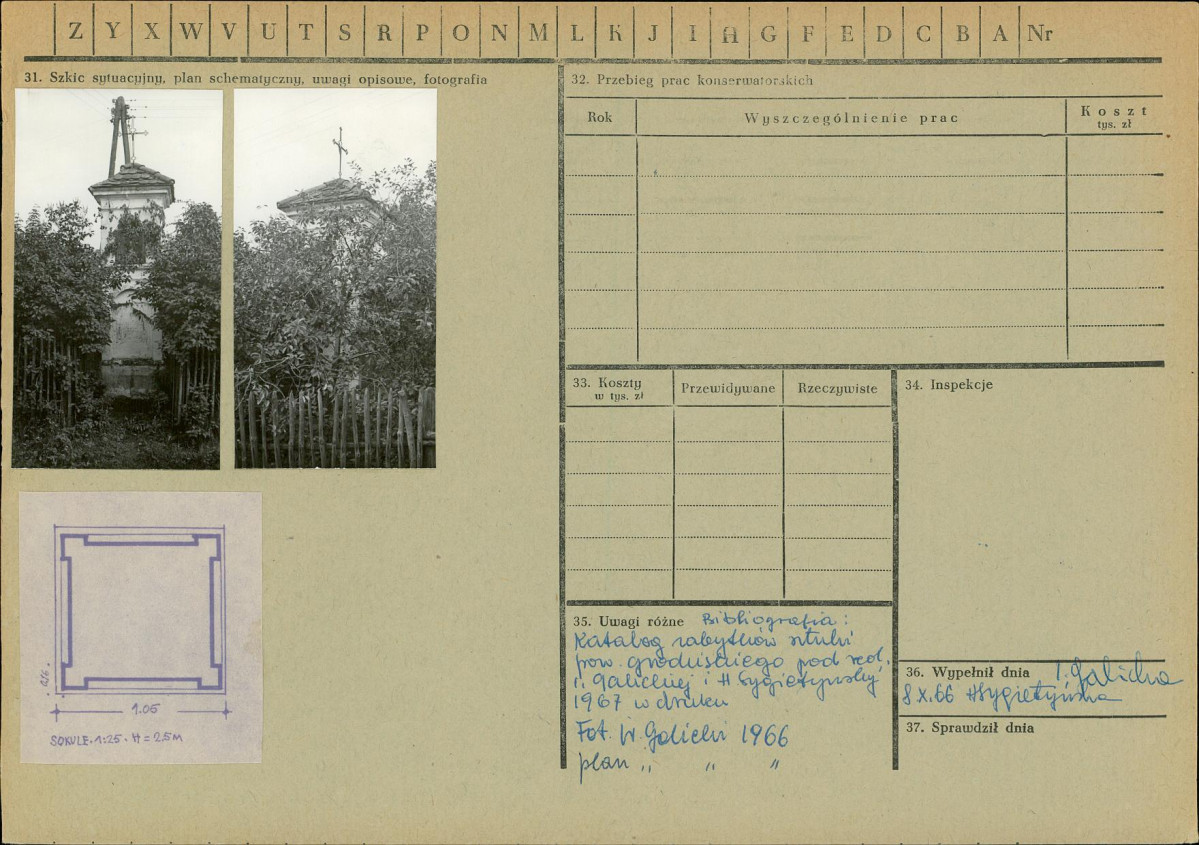 Z Y X W V U T S R P O N M L K J I H G F E D C B A Nr
31. Szkic sytuacyjny, plan schematyczny, uwagi opisowe, fotografia
SOKULE · 1:25 · H = 2,5 M
1.05
32. Przebieg prac konserwatorskich
Rok
Wyszczególnienie prac
Koszt
tys. zł
33. Koszty
w tys. zł
Przewidywane
Rzeczywiste
34. Inspekcje
35. Uwagi różne Bibliografia:
Katalog zabytków sztuki
pow. grodziskiego pod red.
I. Galickiej i H Sygietyńskiej
1967 w druku
Fot. W. Galicki 1966
plan „ „ „
36. Wypełnił dnia I. Galicka
8 X.66 HSygietyńska
37. Sprawdził dnia